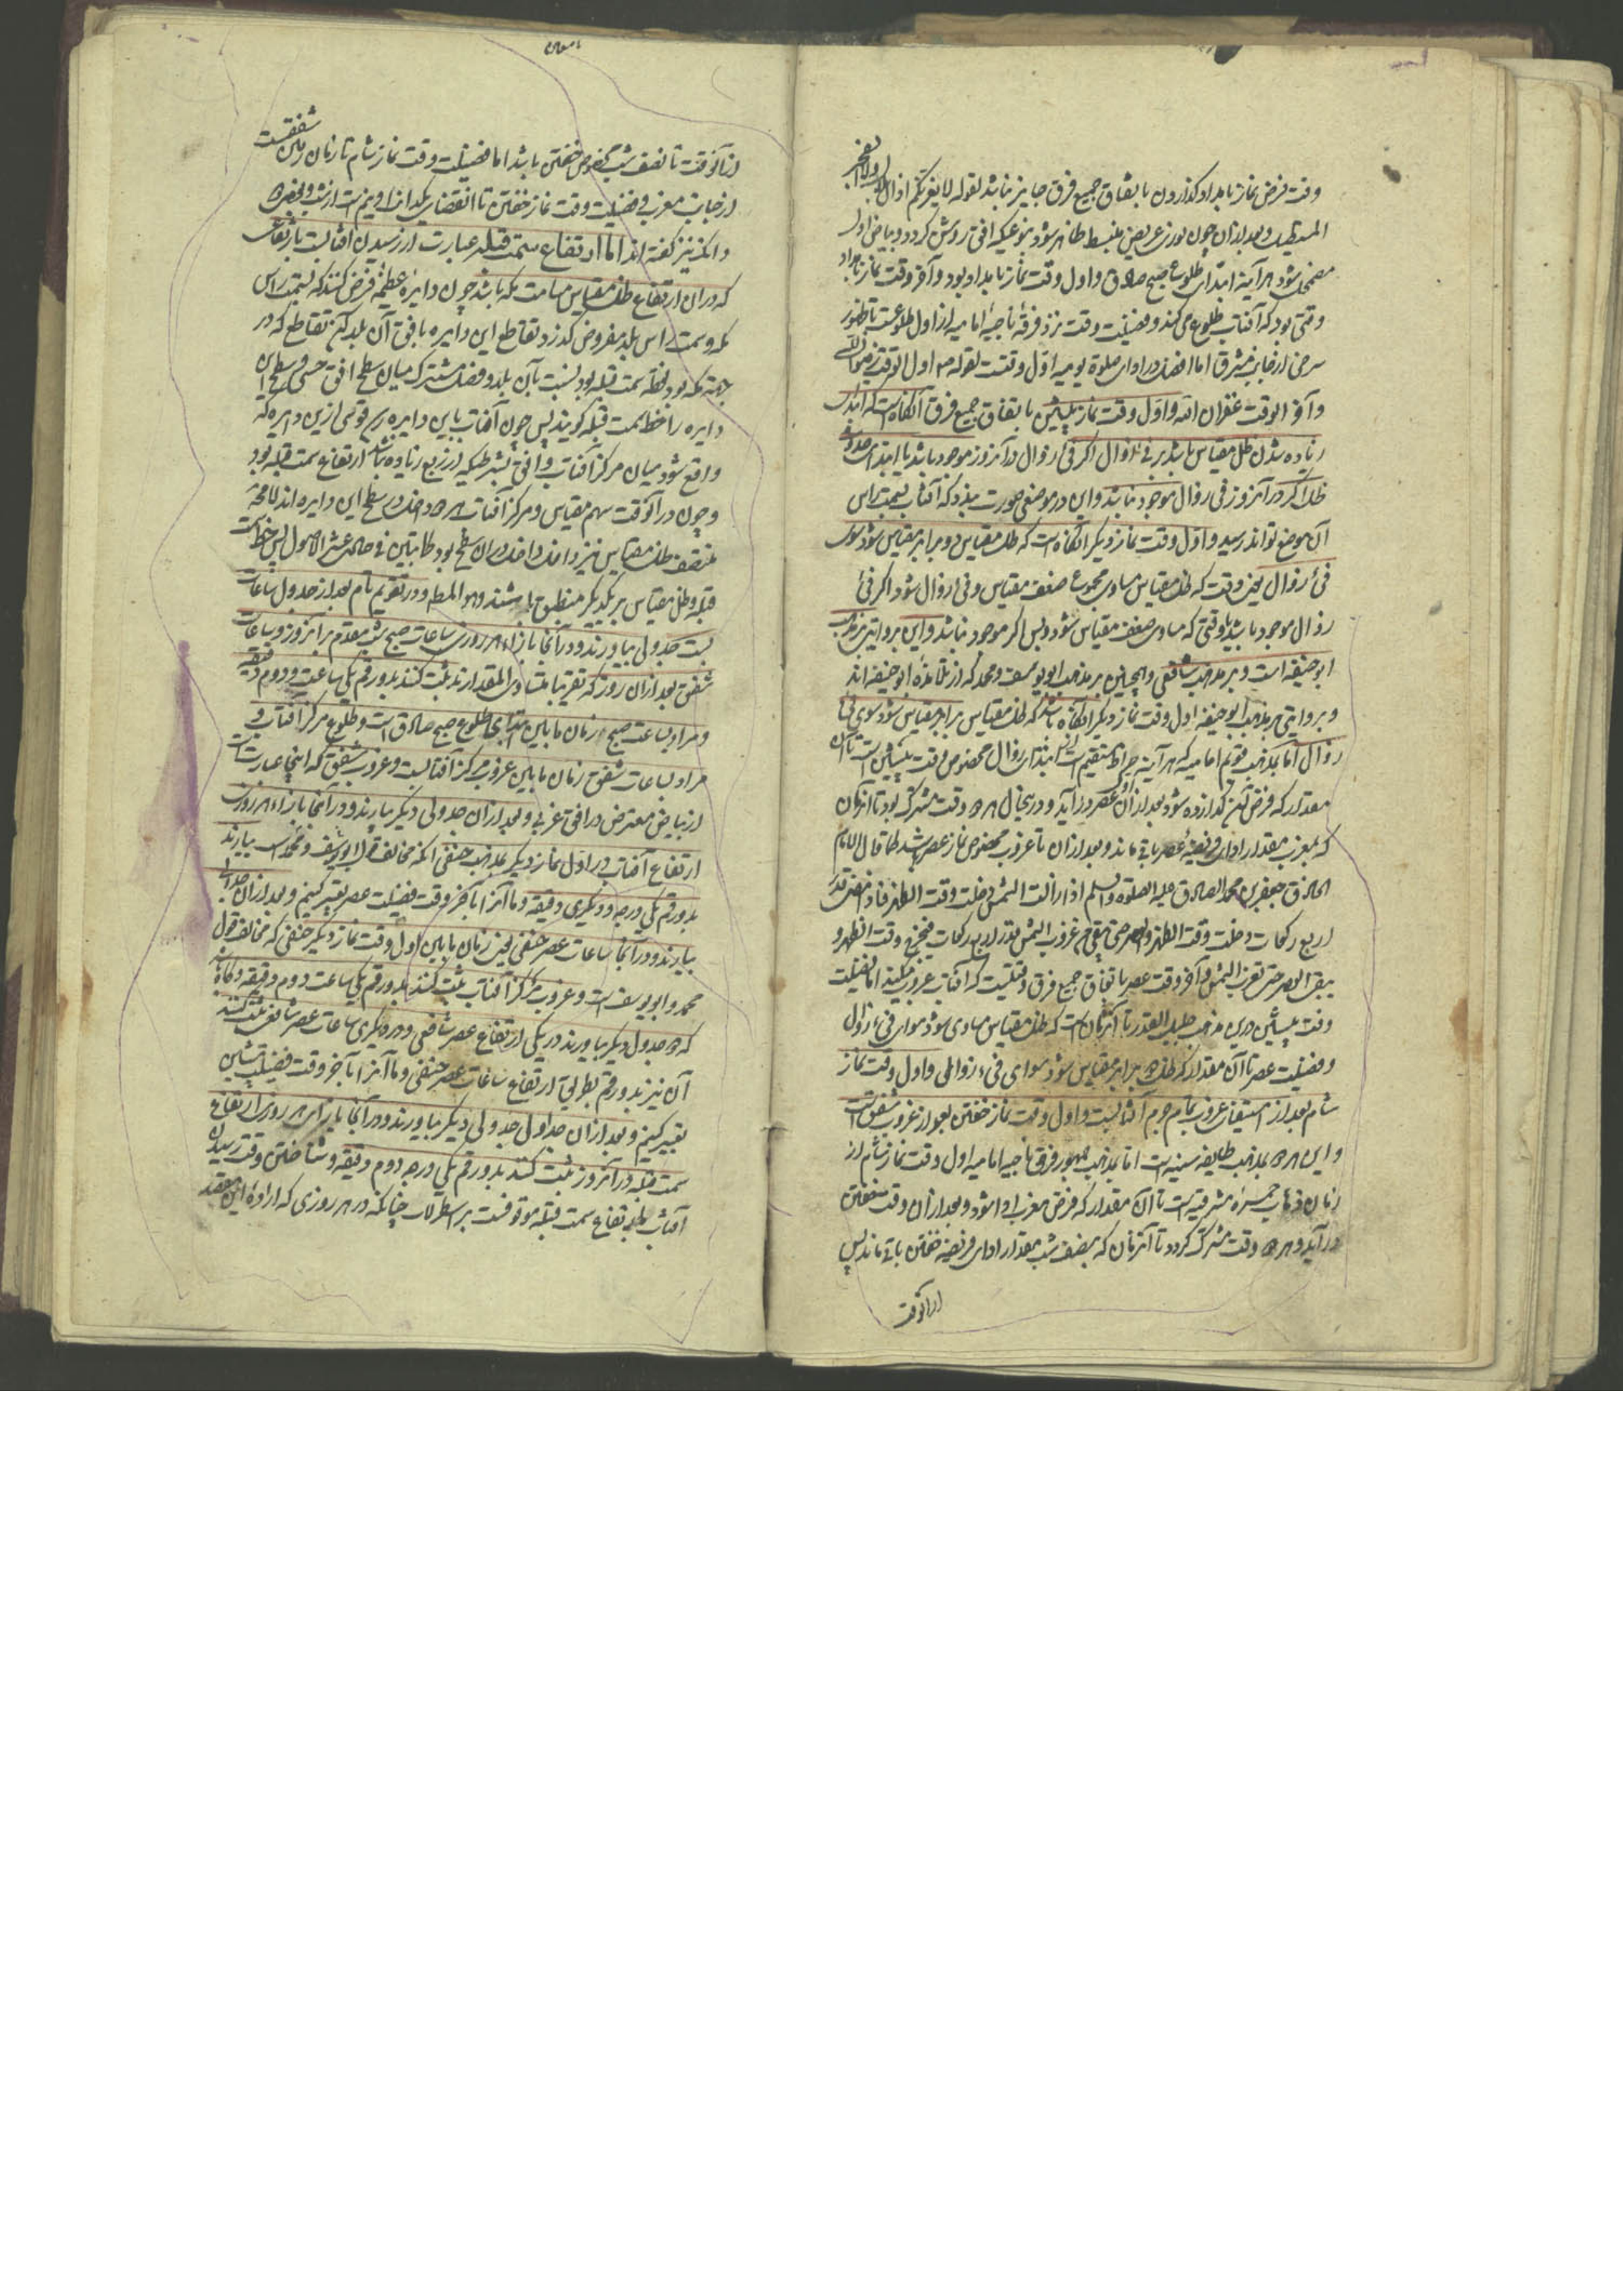 وقت فرض نماز بامداد گذاردن باتفاق جمیع فرق جایز نباشد لقوله لا یغرنکم اذان بلال ولا الفجر
المستطیل و بعد از آن چون نوری عریض منبسط ظاهر شود بنوعیکه افق روشن گردد و بیاض اول
مضمحل شود هر آینه ابتدای طلوع صبح صادق و اول وقت نماز بامداد بود و آخر وقت نماز بامداد
وقتی بود که آفتاب طلوع می کند و فضیلت وقت نزد فرقه ناجیه امامیه از اول طلوعست تا ظهور
سرخی از جانب مشرق اما افضل در ادای صلوة یومیه اول وقتست لقوله اول الوقت رضوان الله
و آخر الوقت غفران الله و اول وقت نماز پیشین باتفاق جمیع فرق آنگاه است که ابتدای
زیاده شدن ظل مقیاس باشد بر فئ زوال اگر فئ زوال در آنروز موجود باشد یا ابتدای حدوث
ظل اگر در آنروز فئ زوال موجود نباشد و این در موضعی صورت بندد که آفتاب بسمت راس
آن موضع تواند رسید و اول وقت نماز دیگر آنگاه است که ظل مقیاس دو برابر مقیاس شود سوی
فئ زوال یعنی وقت که ظل مقیاس مساوی مجموع ضعف مقیاس و فئ زوال شود اگر فئ
زوال موجود باشد یا وقتی که مساوی ضعف مقیاس شود و بس اگر موجود نباشد و این بروایتی بمذهب
ابو حنیفه است و بر مذهب شافعی و همچنین بر مذهب ابو یوسف و محمد که از تلامذه ابو حنیفه اند
و بروایتی بر مذهب ابو حنیفه اول وقت نماز دیگر آنگاه باشد که ظل مقیاس برابر مقیاس شود سوی فئ
زوال اما بمذهب قویم امامیه که هر آینه صراط مستقیم است از ابتدای زوال مخصوص وقت پیشین است تا آن
مقدار که فرض آن گذارده شود بعد از آن وقت عصر در آید و درینحال هر دو وقت مشترک بود تا آنزمان
که بغروب مقدار ادای فریضه عصر باقی ماند و بعد از آن تا غروب مخصوص نماز عصر باشد کما قال الامام
الحاذق جعفر بن محمد الصادق علیه الصلوة والسلم اذا زالت الشمس دخلت وقت الظهر فاذا مضی قدر
اربع رکعات دخلت وقت الظهر والعصر حتی یبقی من غروب الشمس بقدر اربع رکعات فیخرج وقت الظهر و
یبقی العصر حتی تغرب الشمس و آخر وقت عصر باتفاق جمیع فرق وقتیست که آفتاب غروب میکند اما فضیلت
وقت پیشین درین مذهب جلیل القدر تا آنزمان است که ظل مقیاس مساوی شود سوای فئ زوال
و فضیلت عصر تا آن مقدار که ظل دو برابر مقیاس شود سوای فئ زوالی و اول وقت نماز
شام بعد از استیقان غروب تمام جرم آفتابست و اول وقت نماز خفتن بعد از غروب شفق است
و این هر دو بمذهب طایفه سنیه است اما بمذهب جمهور فرق ناجیه امامیه اول وقت نماز شام از
زمان ذهاب حمره مشرقیه است تا آن مقدار که فرض مغرب ادا شود و بعد از آن وقت خفتن
در آید و هر دو وقت مشترک گردد تا آنزمان که بنصف شب مقدار ادای فریضه خفتن باقی ماند پس
از آنوقت
از آنوقت تا نصف شب مخصوص خفتن باشد اما فضیلت وقت نماز شام تا زمان رفتن شفقست
از جانب مغرب و فضیلت وقت نماز خفتن تا انقضای یکدانک و نیم است از شب و بعضی
دانک نیز گفته اند اما ارتفاع سمت قبله عبارت از رسیدن آفتابست بارتفاعی
که در آن ارتفاع ظل مقیاس مسامت مکه باشد چون دایره عظیمه فرض کنند که بسمت راس
مکه و سمت راس بلد مفروض گذرد تقاطع این دایره با افق آن بلد آن تقاطع که در
جهة مکه بود نقطه سمت قبله بود نسبت بآن بلد و فصل مشترک میان سطح افق حسی و سطح این
دایره را خط سمت قبله گویند پس چون آفتاب باین دایره رسد قوسی ازین دایره که
واقع شود میان مرکز آفتاب و افق بشرطیکه از ربع زیاده نباشد ارتفاع سمت قبله بود
و چون در آنوقت سهم مقیاس و مرکز آفتاب هر دو داخل در سطح این دایره اند لا محاله
منتصف ظل مقیاس نیز داخل در آن سطح بود کما تبین فی حادی عشر الاصول پس خط سمت
قبله و ظل مقیاس بر یکدیگر منطبق باشند و هو المطلوب و در تقویم تام بعد از جدول ساعات
بست جدولی بیاورند و در آنجا بازاء هر روزی ساعات صبح شب مقدم بر آنروز و ساعات
شفق بعد از آن روز که تقریبا متساوی المقدارند ثبت کنند بدو رقم یکی ساعت و دوم دقیقه
و مراد بساعت صبح زمان ما بین ابتدای طلوع صبح صادق است و طلوع مرکز آفتاب و
مراد بساعات شفق زمان ما بین غروب مرکز آفتابست و غروب شفق که اینجا عبارتست
از بیاض معترض در افق غربی و بعد از آن جدولی دیگر بیارند و در آنجا بازاء هر روزی
ارتفاع آفتاب در اول نماز دیگر بمذهب حنفی آنکه مخالف قول ابو یوسف و محمد است بیارند
بدو رقم یکی درجه و دیگری دقیقه و ما آنرا بآخر وقت فضیلت عصر تعبیر کنیم و بعد از آن جدولی
بیارند و در آنجا ساعات عصر حنفی یعنی زمان ما بین اول وقت نماز دیگر حنفی که مخالف قول
محمد و ابو یوسف است و غروب مرکز آفتاب ثبت کنند بدو رقم یکی ساعت دوم دقیقه و گاه باشد
که دو جدول دیگر بیاورند در یکی ارتفاع عصر شافعی و در دیگری ساعات عصر شافعی ثبت کنند
آن نیز بدو رقم بطریق ارتفاع ساعات عصر حنفی و ما آنرا بآخر وقت فضیلت پیشین
تعبیر کنیم و بعد از آن جداول جدولی دیگر بیاورند و در آنجا بازای هر روزی ارتفاع
سمت قبله در آنروز ثبت کنند بدو رقم یکی درجه دوم دقیقه و شناختن وقت رسیدن
آفتاب بارتفاع سمت قبله موقوفست بر اسطرلاب چنانکه در هر روزی که اراده این مقصد